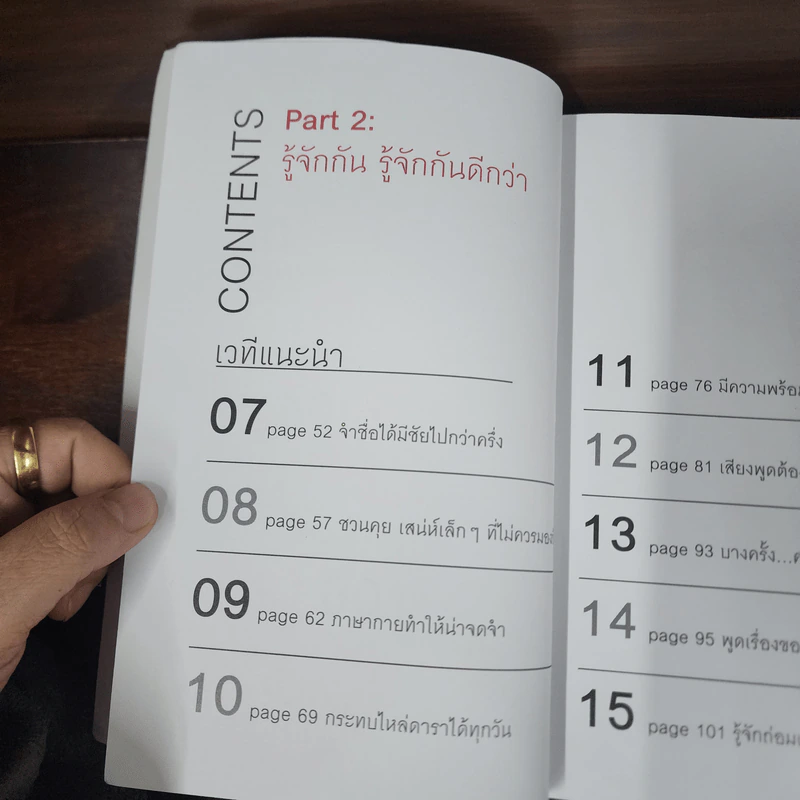 CONTENTS
Part 2:
รู้จักกัน รู้จักกันดีกว่า
เวทีแนะนำ
07 page 52 จำชื่อได้มีชัยไปกว่าครึ่ง
08 page 57 ชวนคุย เสน่ห์เล็ก ๆ ที่ไม่ควรมอง
09 page 62 ภาษากายทำให้น่าจดจำ
10 page 69 กระทบไหล่ดาราได้ทุกวัน
11 page 76 มีความพร้อม
12 page 81 เสียงพูดต้อง
13 page 93 บางครั้ง...
14 page 95 พูดเรื่องของ
15 page 101 รู้จักถ่อม